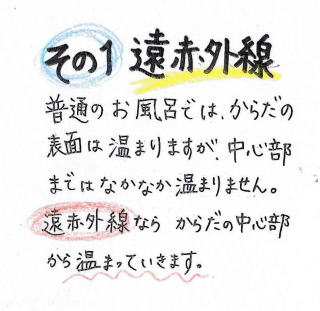 その1 遠赤外線
普通のお風呂では、からだの
表面は温まりますが、中心部
まではなかなか温まりません。
遠赤外線なら からだの中心部
から温まっていきます。